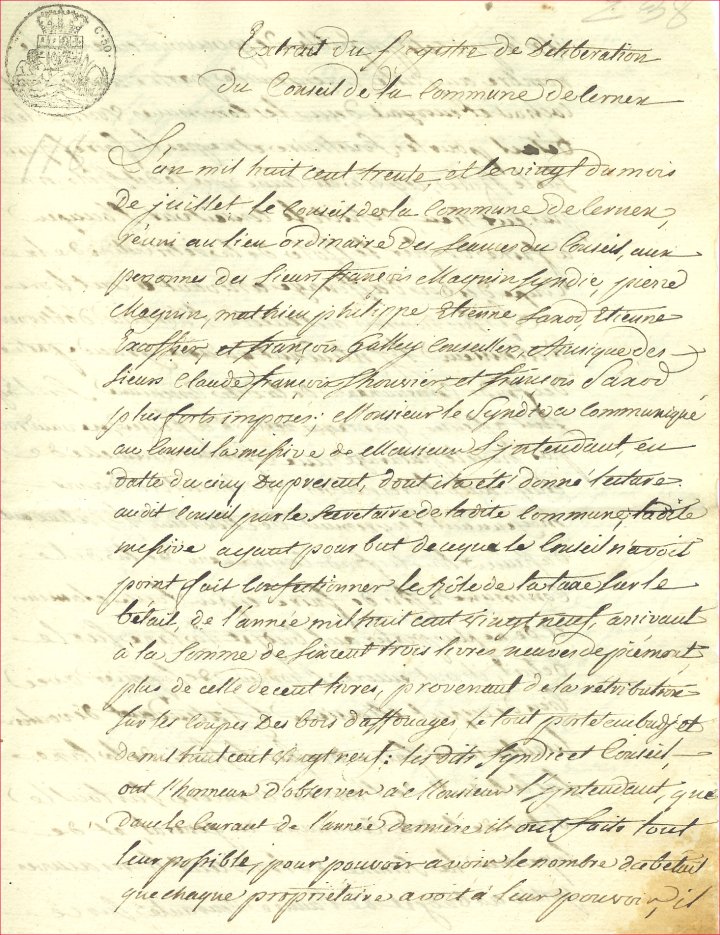 C. 80.
Extrait du Registre de Déliberation
du Conseil de la Commune de Cernex
L'an mil huit cent trente, et le vingt du mois
de juillet le Conseil de la Commune de Cernex,
réuni au lieu ordinaire des Seances du Conseil, aux
personnes des Sieurs françois Magnin Syndic, pierre
Magnin, mathieu philippe Etienne Saxod, Etienne
Excoffier et françois Conseillers, des
Sieurs Claude françois et françois Saxod
plus forts imposés; Monsieur le Syndic a communiqué
au Conseil la missive de Monsieur L'yntendant, en
datte du cinq du present, dont il a été donné lecture
audit Conseil par le Secretaire de la dite Commune, la dite
missive ayant pour but de ce que le Conseil n'avoit
point fait Confectionner le Rôle de la taxe sur le
bétail, de l'année mil huit cent vingt neuf, arrivant
à la Somme de Six cent trois livres neuves de piémont
plus de celle de cent livres, provenant de la rétribution
sur les coupes des bois d'affouages, le tout porté au budjet
de mil huit cent vingt neuf: les dits Syndic et Conseil
ont l'honneur d'observer à Monsieur l'yntendant, que
dans le Courant de l'année dernière il ont faits tout
leur possible, pour pouvoir avoir le nombre de bétail
que chaque propriétaire avoit à leur pouvoir, il